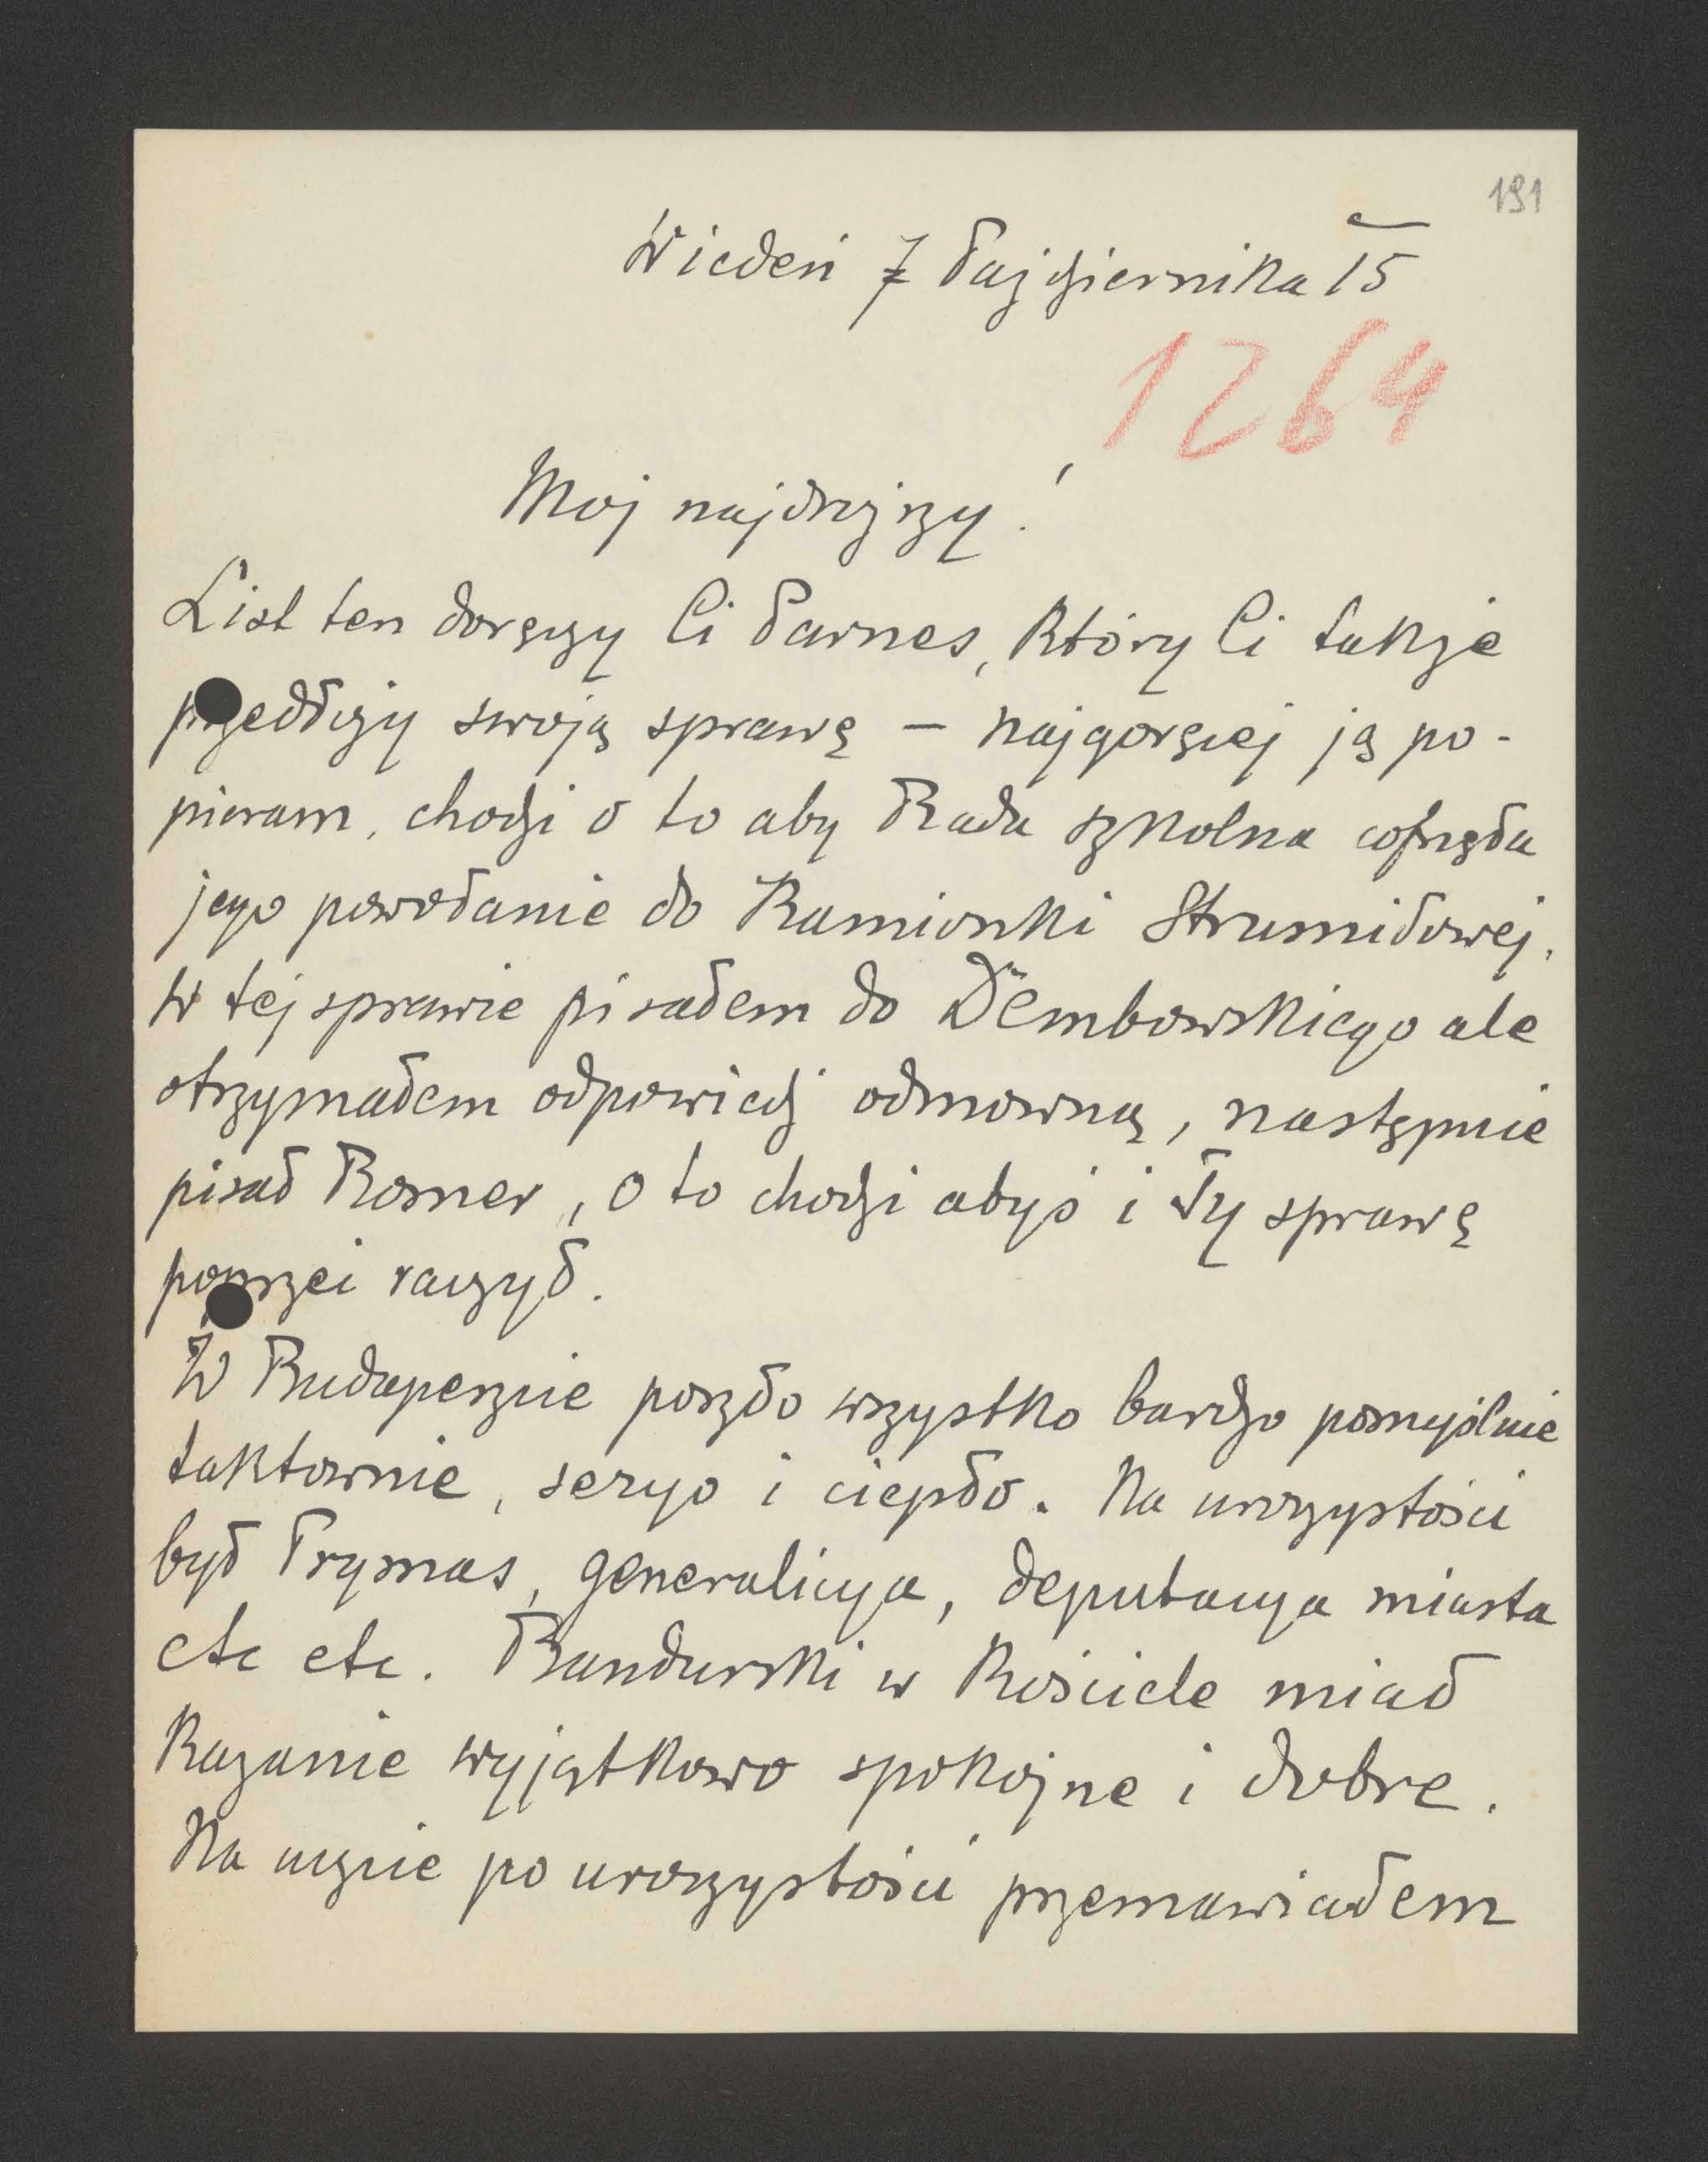 191
Wiedeń 7 Października 15
1264
Moj najdrozszy!
List ten doręczy Ci Parnes, który Ci także
przedłoży swoją sprawę – najgoręcej ją po-
pieram, chodzi o to aby Rada szkolna cofnęła
jego powołanie do Kamionki Strumiłowej.
W tej sprawie pisałem do Dembowskiego ale
otrzymałem odpowiedź odmowną, następnie
pisał Romer, o to chodzi abyś i Ty sprawę
poprzeć raczył.
W Budapeszcie poszło wszystko bardzo pomyślnie
taktownie, seryo i ciepło. Na uroczystości
był Prymas, generalicya, deputacya miasta
etc etc. Bandurski w Kościele miał
Kazanie wyjątkowo spokojne i dobre.
Na uczcie po uroczystości przemawiałem